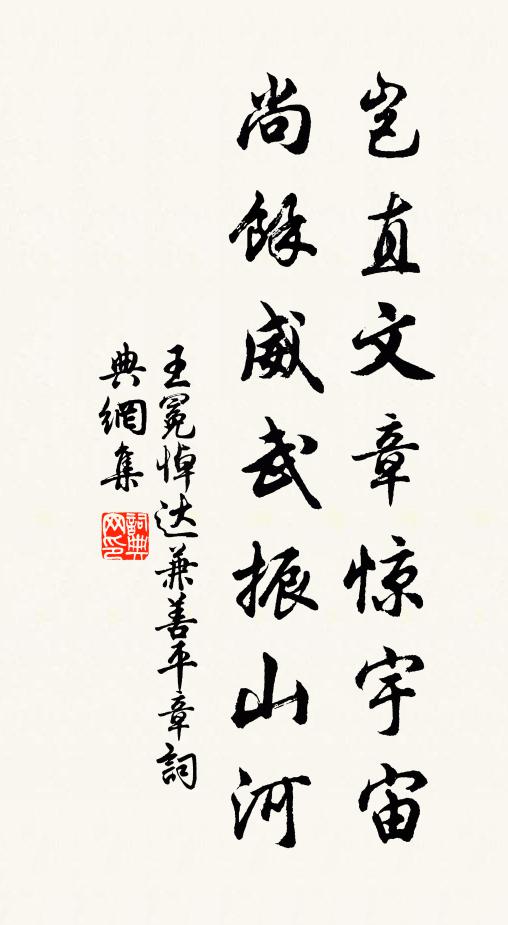 岂直文章惊宇宙
尚餘威武振山河
王冕悼达兼善平章詞
典網集
詞典网印